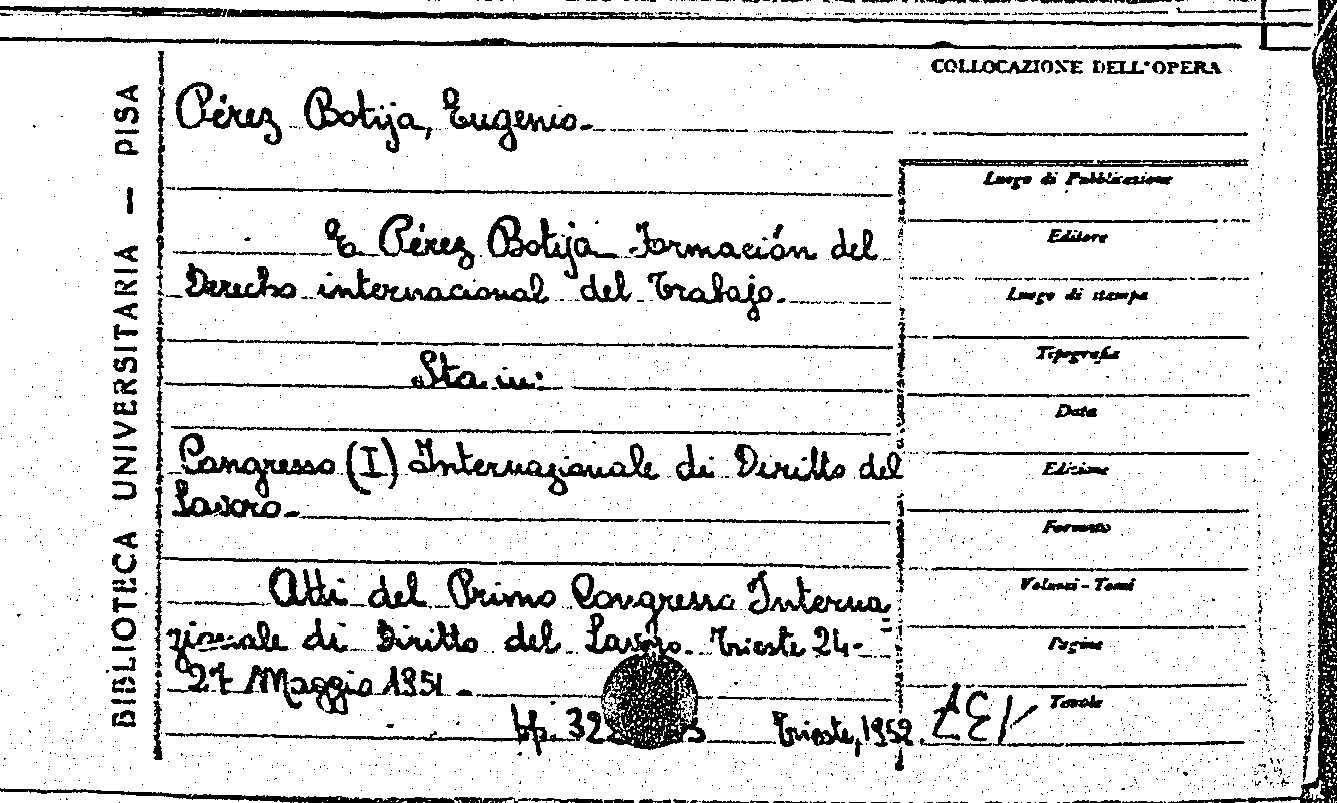 BIBLIOTECA UNIVERSITARIA — PISA
COLLOCAZIONE DELL'OPERA
Pérez Botija, Eugenio.
E. Pérez Botija Formación del
Derecho internacional del Trabajo.
Sta in:
Congresso (I) Internazionale di Diritto del
Lavoro.
Atti del Primo Congresso Interna=
zionale di Diritto del Lavoro. Trieste 24-
27 Maggio 1951.
pp. 32
Trieste, 1952.
Luogo di Pubblicazione
Editore
Luogo di stampa
Tipografia
Data
Edizione
Formato
Volumi - Tomi
Pagine
Tavole